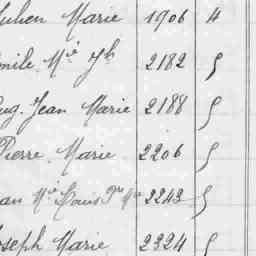 ulien Marie 1906 4
mile Mie Jh 2182 5
ug. Jean Marie 2188 5
Pierre Marie 2206 5
an Mie Louis Pre Mie 2242 5
oseph Marie 2324 5